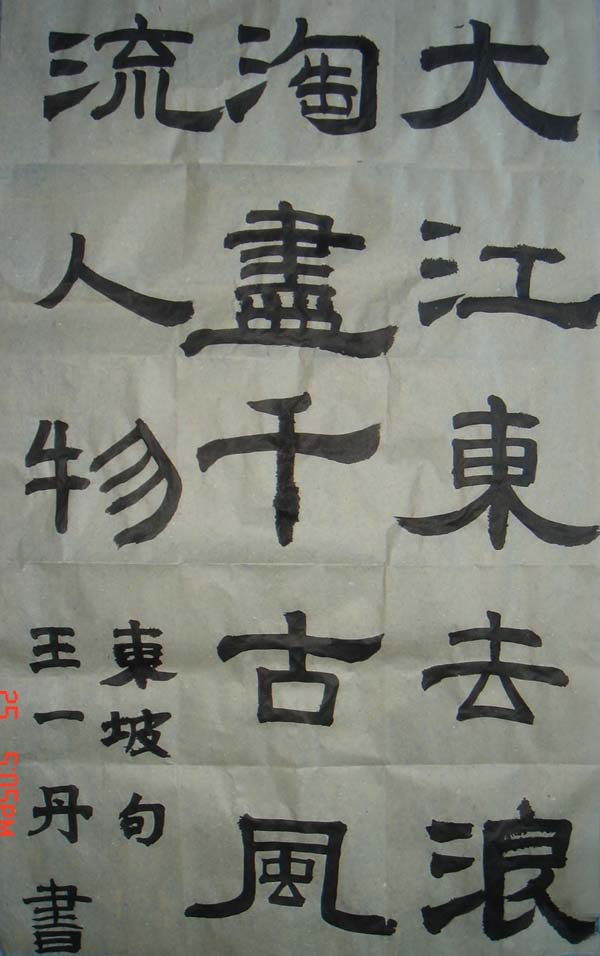 大江東去浪
淘盡千古風
流人物
東坡句
王一丹書
25 5:05PM